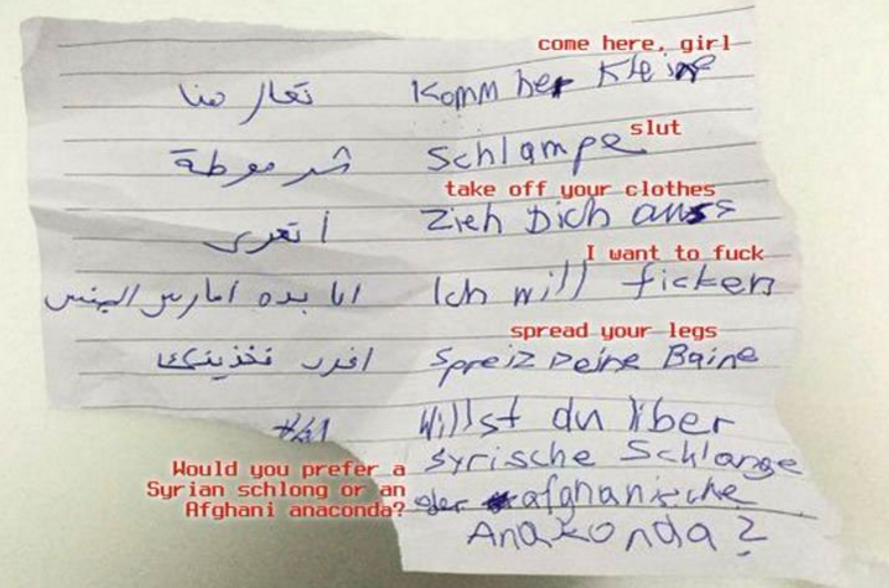 come here, girl
تعال هنا Komm her Kleine
slut
شرموطة Schlampe
take off your clothes
اتعرى Zieh Dich auss
I want to fuck
انا بده امارس الجنس Ich will ficken
spread your legs
افرد فخذيتك Spreiz Deine Baine
Willst du liber
Would you prefer a syrische Schlange
Syrian schlong or an oder afghanische
Afghani anaconda?
Anakonda?